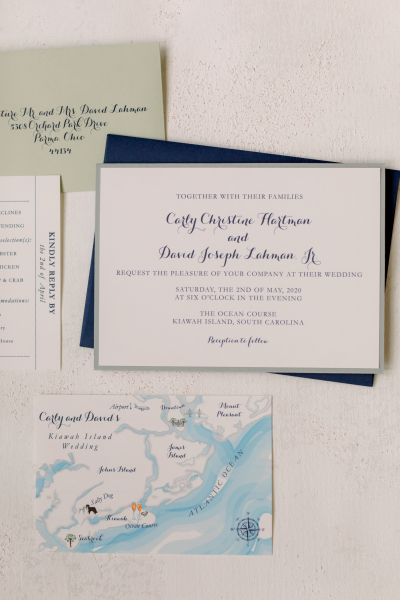 Mr and Mrs David Lahman
5305 Orchard Park Drive
Parma Ohio
44134
KINDLY REPLY BY
the 2nd of April
TOGETHER WITH THEIR FAMILIES
Carly Christine Hartman
and
David Joseph Lahman Jr
REQUEST THE PLEASURE OF YOUR COMPANY AT THEIR WEDDING
SATURDAY, THE 2ND OF MAY, 2020
AT SIX O'CLOCK IN THE EVENING
THE OCEAN COURSE
KIAWAH ISLAND, SOUTH CAROLINA
Reception to follow
Carly and David's
Kiawah Island
Wedding
Airport
Downtown
Mount
Pleasant
James
Island
Johns Island
ATLANTIC OCEAN
Lazy Dog
Kiawah
Ocean Course
Seabrook